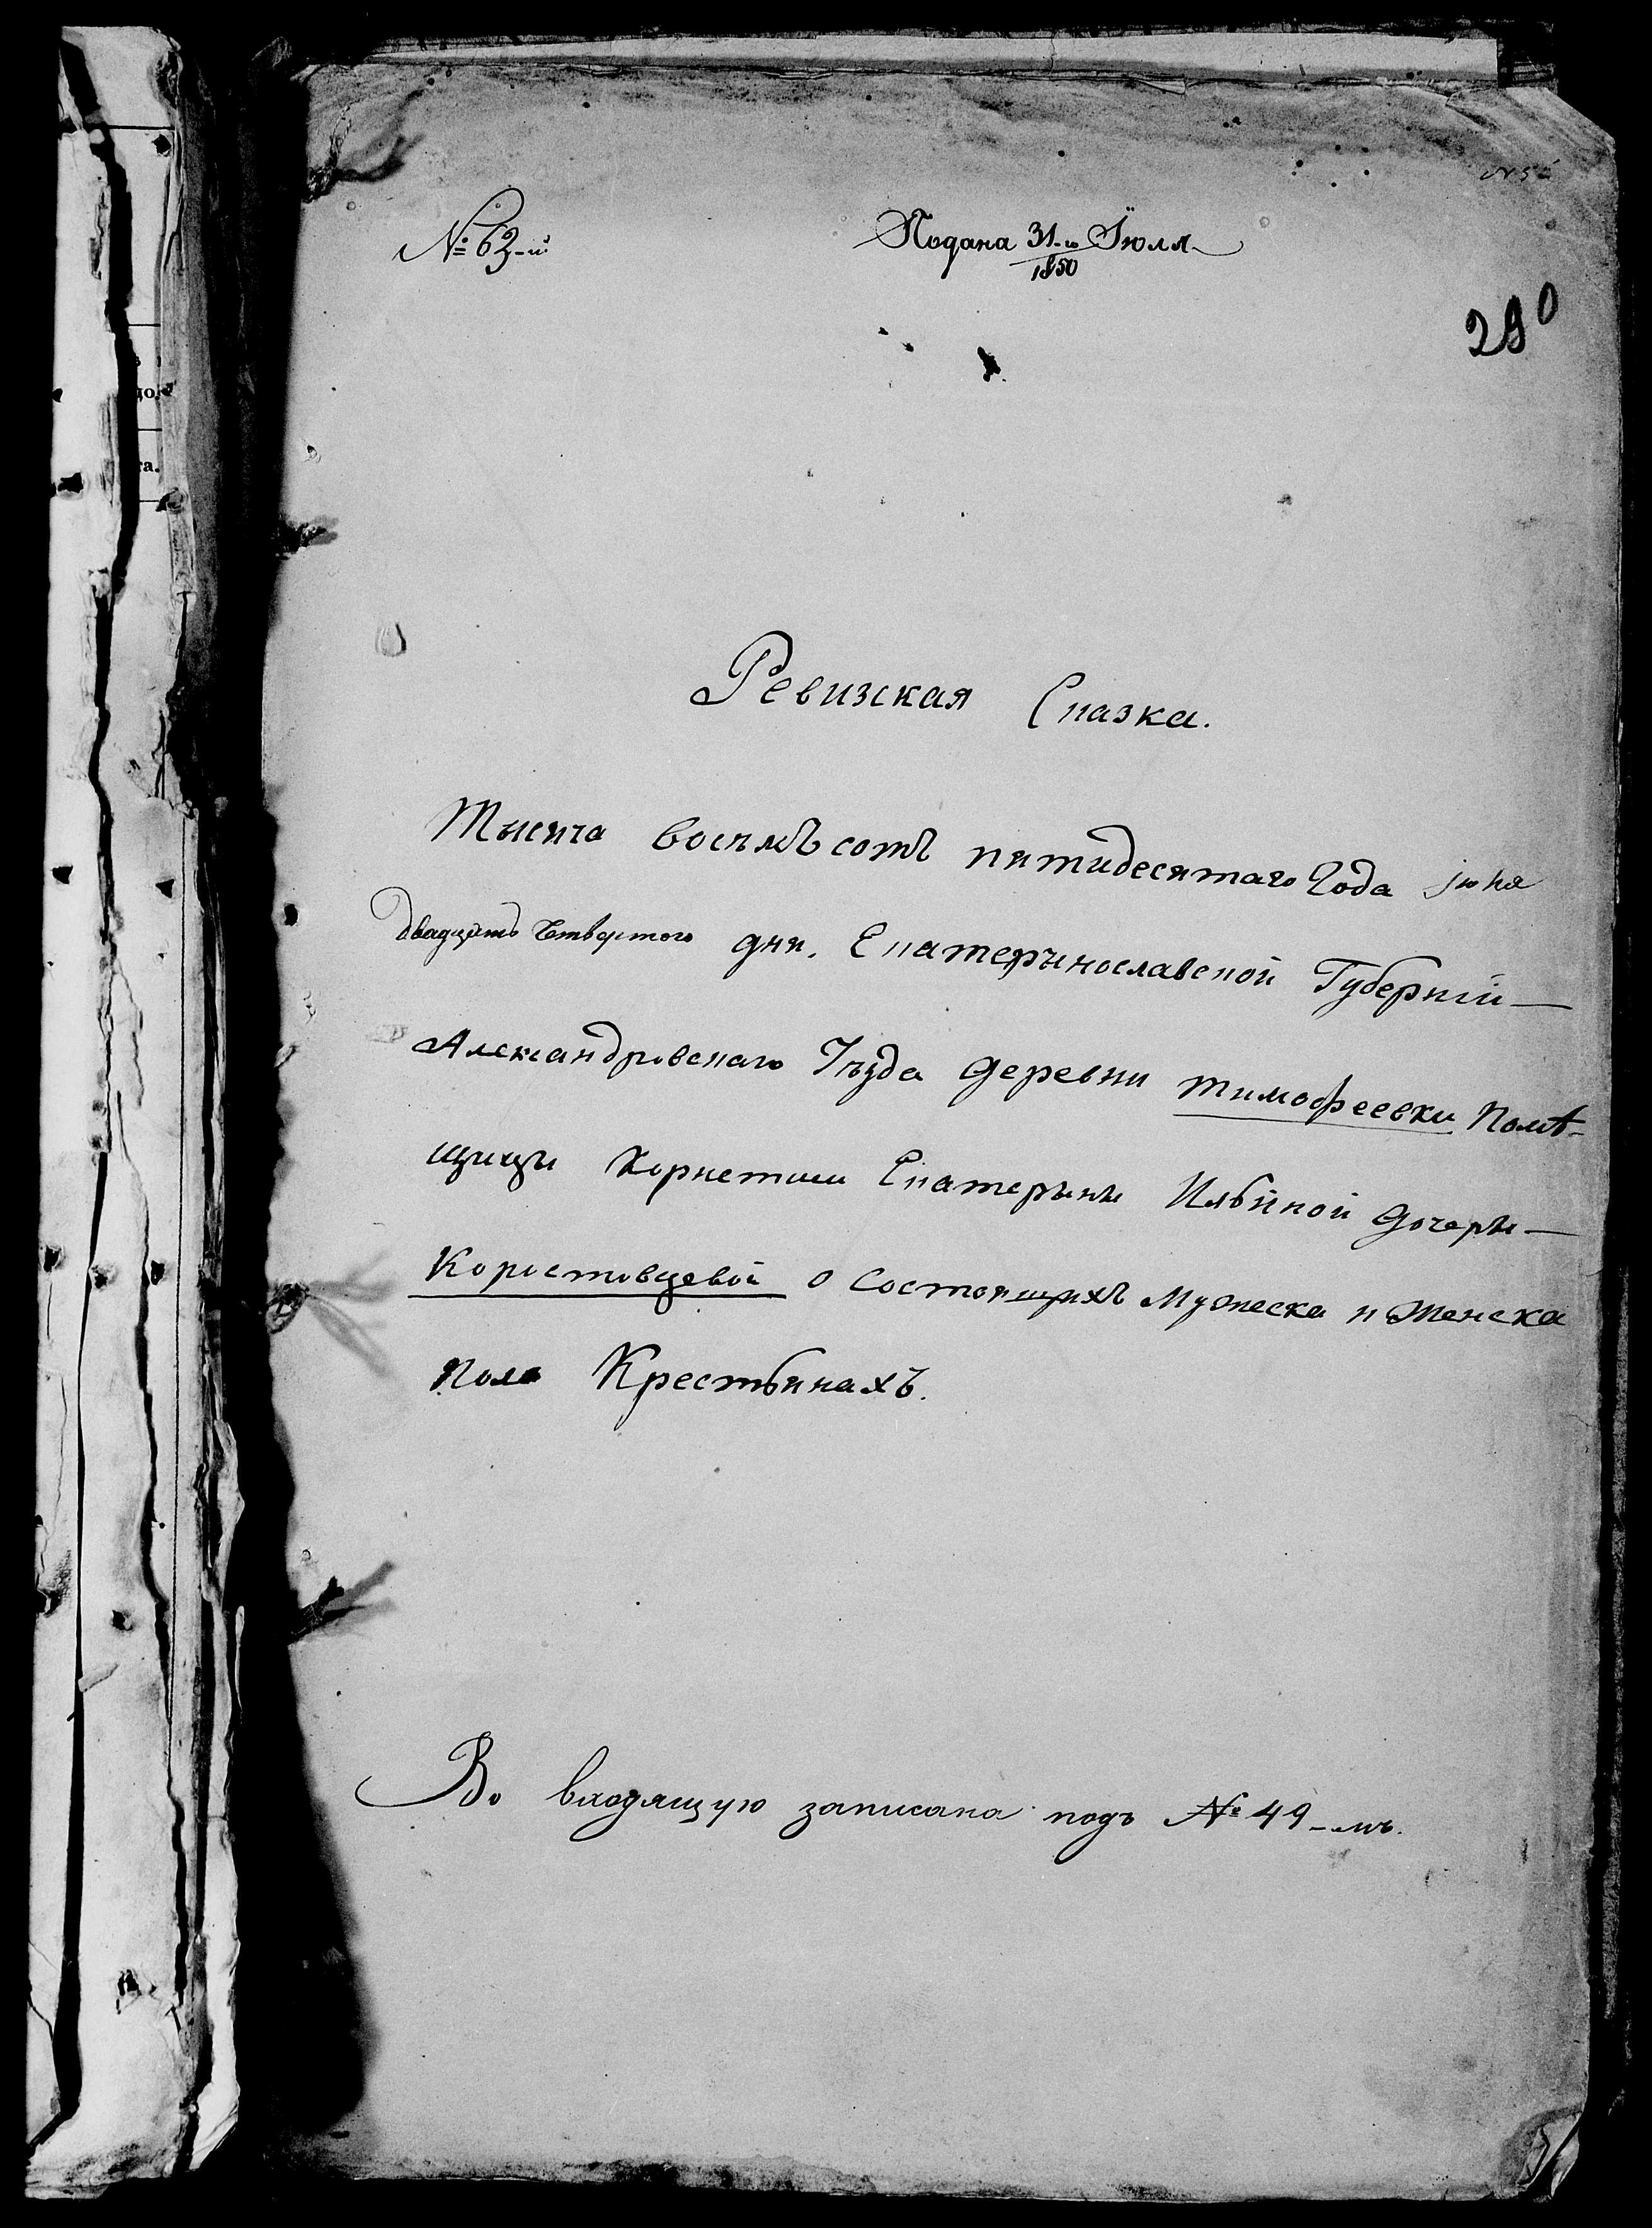 № 63-й
Подана 31-го Іюля
1850
290
Ревизская Сказка.
Тысяча восьмъсотъ пятидесятаго Года іюня
двадцять четвертого дня. Екатерынославской Губерніи
Александровскаго Уъзда деревни Тимофеевки Помѣ-
щицы Корнетши Екатерыны Ильиной дочеры
Коростовцевой о Состоящихъ Мужеска и Женска
Пола Крестьянахъ.
Во входящую записана подъ № 49-мъ.